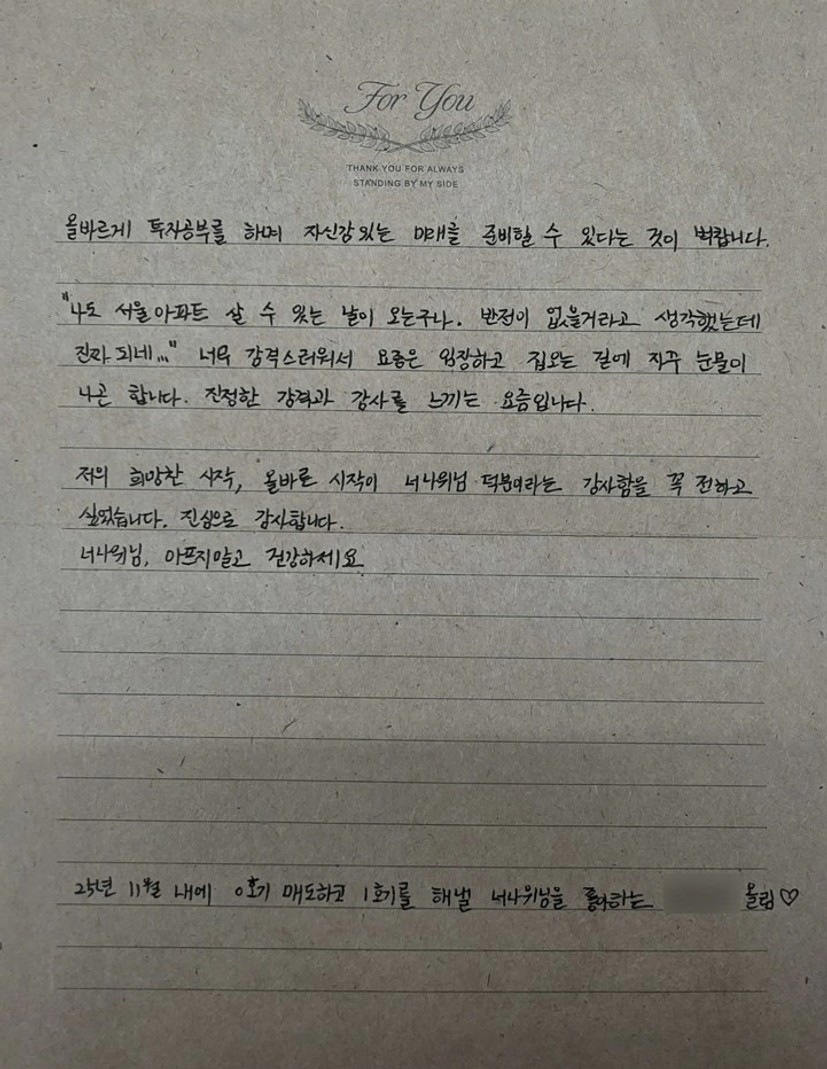 For You
THANK YOU FOR ALWAYS
STANDING BY MY SIDE
올바르게 투자공부를 하며 자신감있는 미래를 준비할 수 있다는 것이 벅찹니다.
"나도 서울아파트 살 수 있는 날이 오는구나. 반전이 없을거라고 생각했는데
진짜 되네..." 너무 감격스러워서 요즘은 임장하고 집오는 길에 자꾸 눈물이
나곤 합니다. 진정한 감격과 감사를 느끼는 요즘입니다.
저의 희망찬 시작, 올바른 시작이 너나위님 덕분이라는 감사함을 꼭 전하고
싶었습니다. 진심으로 감사합니다.
너나위님, 아프지말고 건강하세요
25년 11월 내에 0호기 매도하고 1호기를 해낼 너나위님을 좋아하는 올림♡